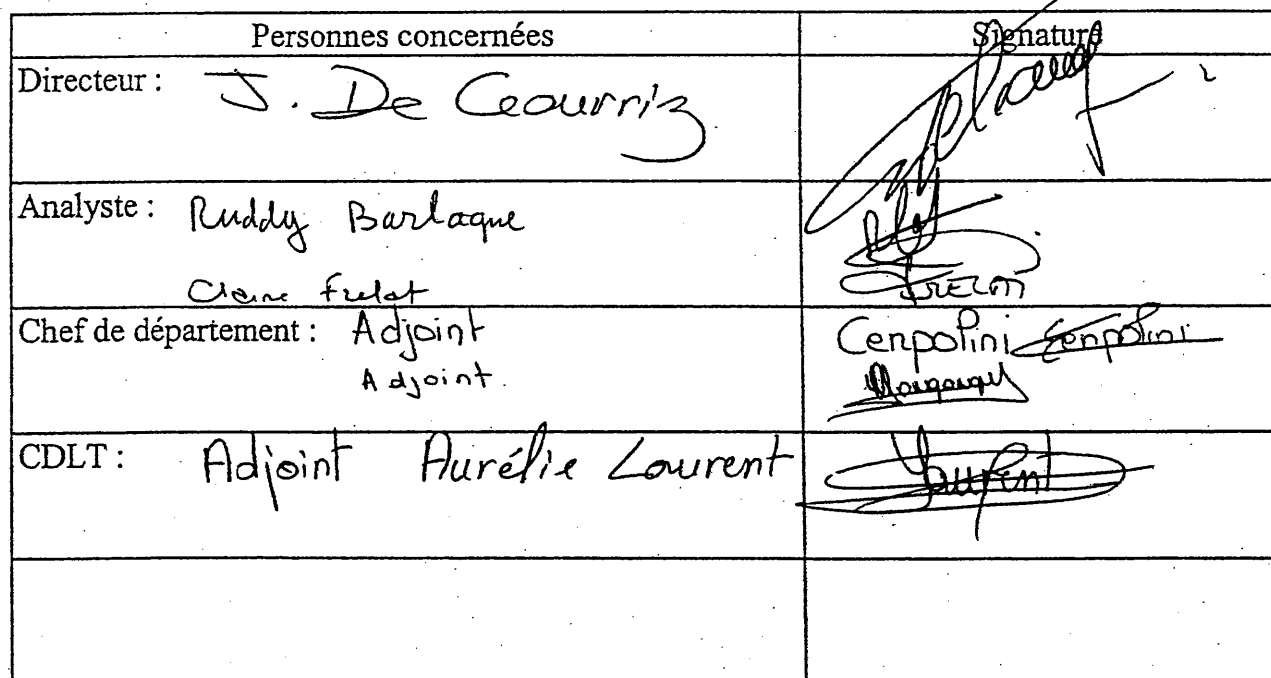 Personnes concernées Signature
Directeur : J. De Ceaurriz
Analyste : Ruddy Barlagne
Claire Frelat FRELAT
Chef de département : Adjoint Cenpolini Cenpolini
Adjoint.
CDLT : Adjoint Aurélie Laurent Laurent